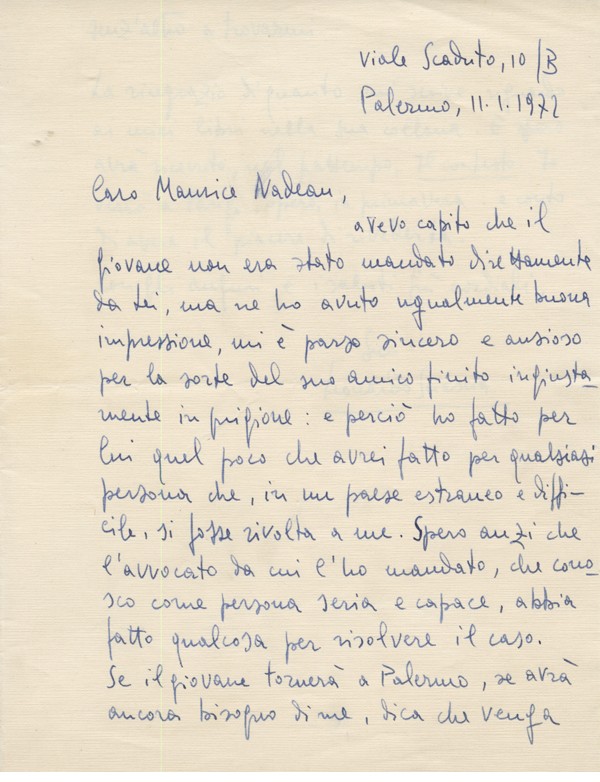 Viale Scaduto, 10/B
Palermo, 11.1.1972
Caro Maurice Nadeau,
avevo capito che il
giovane non era stato mandato direttamente
da Lei, ma ne ho avuto ugualmente buona
impressione, mi è parso sincero e ansioso
per la sorte del suo amico finito ingiusta-
mente in prigione: e perciò ho fatto per
lui quel poco che avrei fatto per qualsiasi
persona che, in un paese estraneo e diffi-
cile, si fosse rivolta a me. Spero anzi che
l'avvocato da cui l'ho mandato, che cono-
sco come persona seria e capace, abbia
fatto qualcosa per risolvere il caso.
Se il giovane tornerà a Palermo, se avrà
ancora bisogno di me, dica che venga